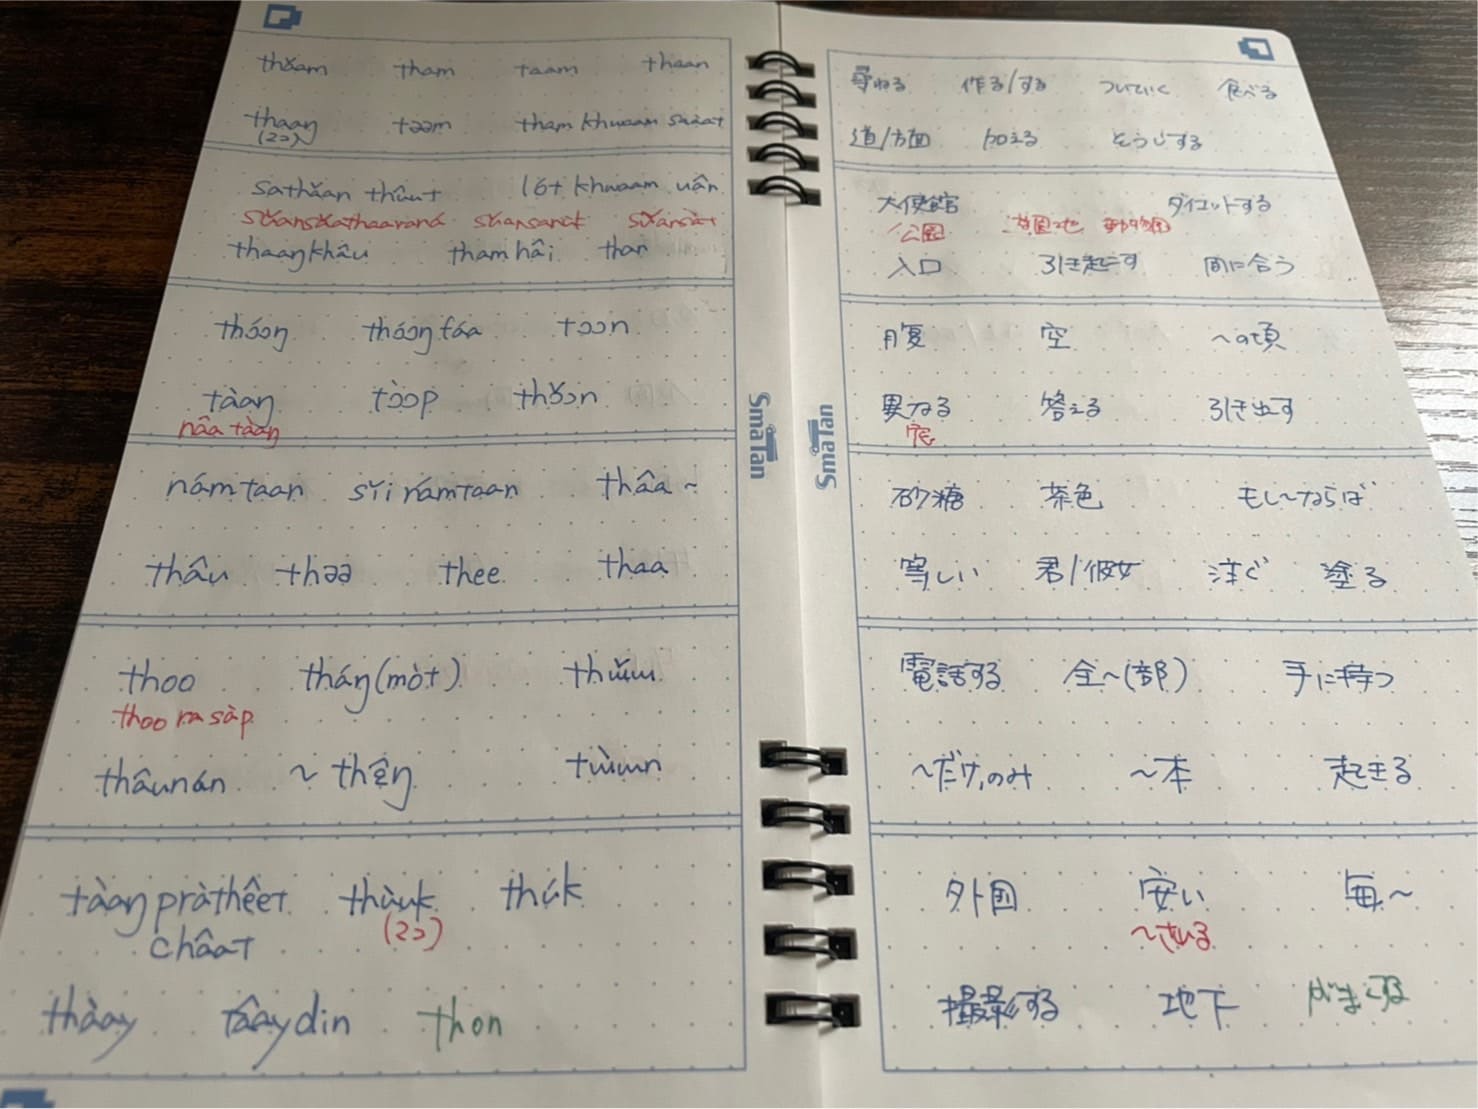 thǎam tham taam thaan
thaaŋ təəm tham khwaam saàat
(2つ)
sathǎan thûut lót khwaam uân
sǔansǎathaaraná sǔansanùk sǔansàt
thaaŋkhâu thamhâi than
thɔ́ɔŋ thɔ́ɔŋ fáa tɔɔn
tàaŋ tɔ̀ɔp thɔ̌ɔn
nâa tàaŋ
námtaan sǐi námtaan thâa ~
thâu thəə thee thaa
thoo tháŋ(mòt) thʉ̌ʉ
thoo ra sàp
thâunán ~ thêŋ tʉ̀ʉn
tàaŋ pràthêet thùuk thúk
châat (2つ)
thàay tâaydin thon
SmaTan
尋ねる 作る/する ついていく 食べる
道/方面 加える そうじする
大使館 ダイエットする
公園 遊園地 動物園
入口 引き起こす 間に合う
腹 空 〜の頃
異なる 答える 引き出す
窓
砂糖 茶色 もし〜ならば
等しい 君/彼女 注ぐ 塗る
電話する 全〜(部) 手に持つ
〜だけ,のみ 〜本 起きる
外国 安い 毎〜
〜される
撮影する 地下 がまんする
SmaTan